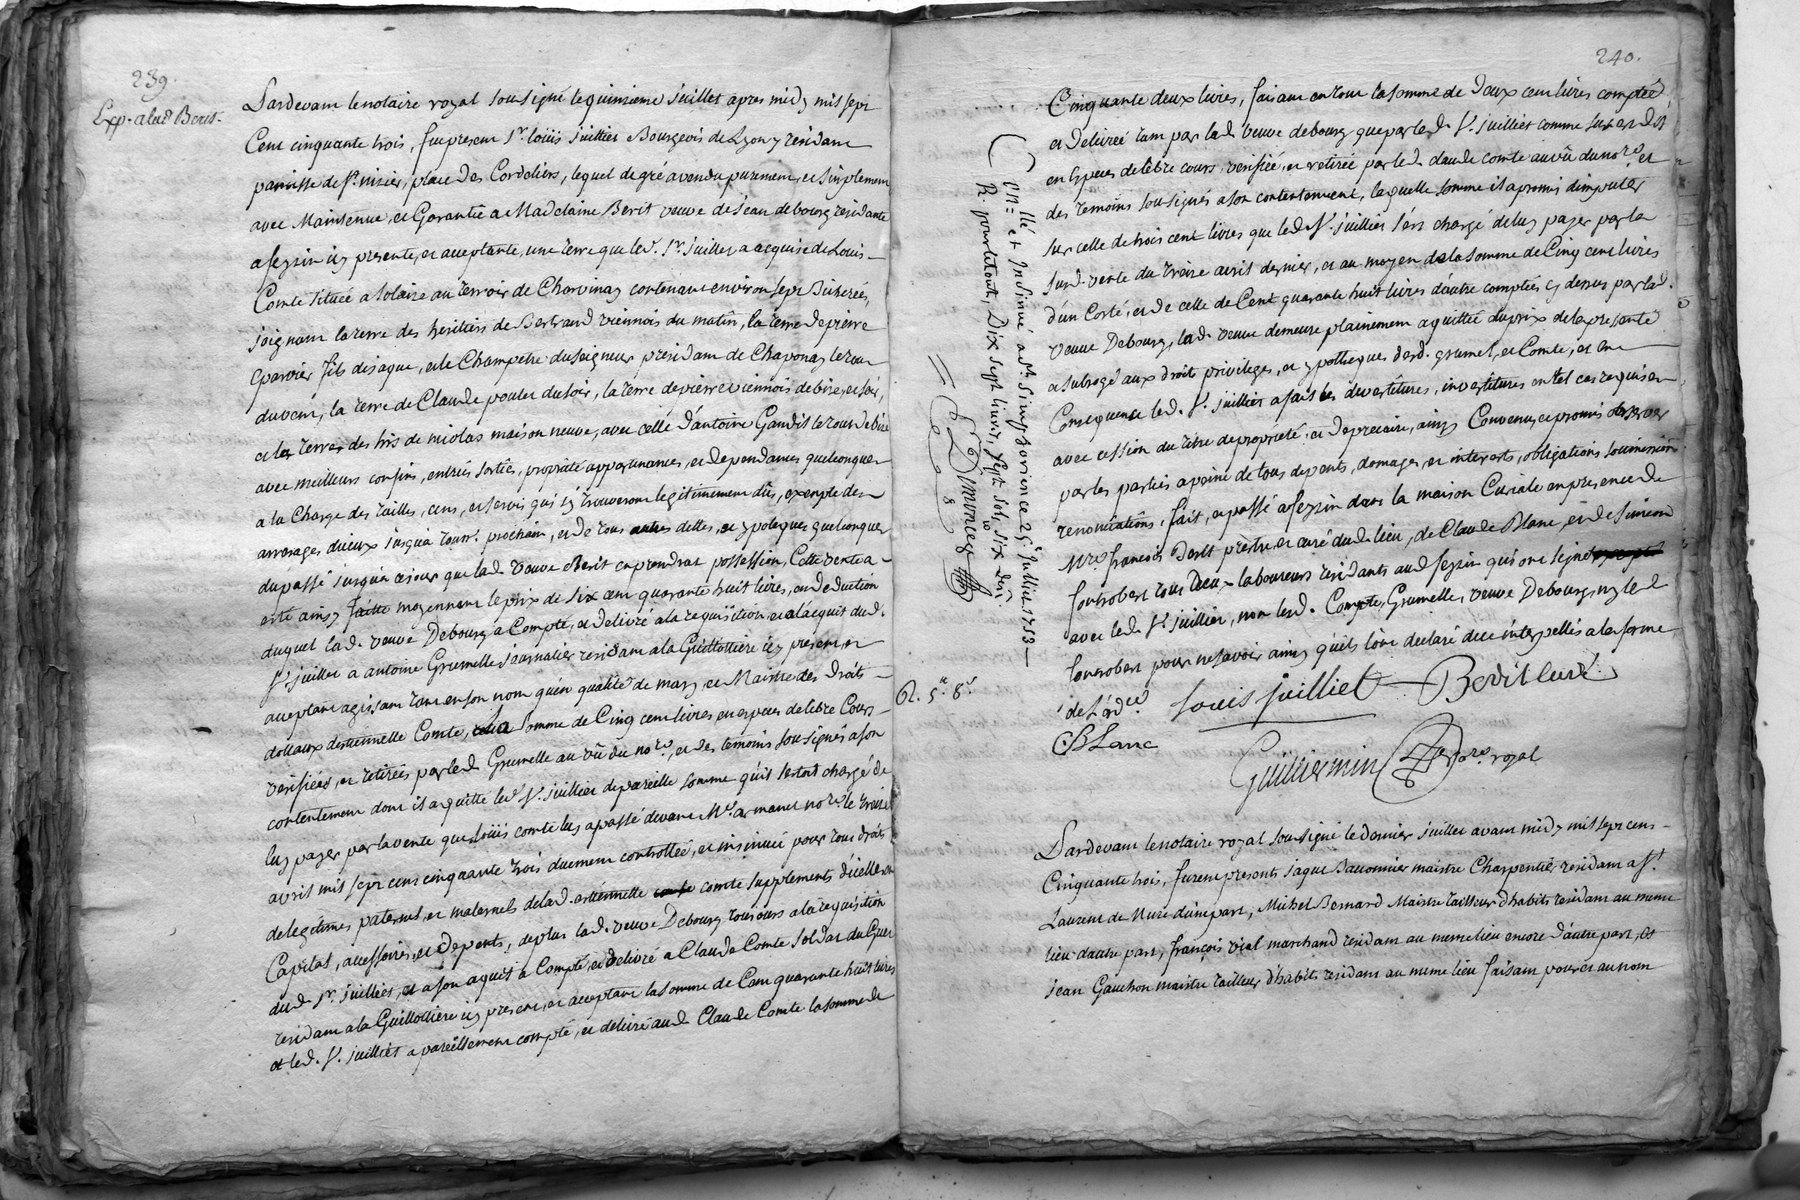 239.
Exp. a lad Berit.
Pardevant le notaire royal sousigné le quinzieme juillet apres midy mil sept
Cent cinquante trois, fut present Sr. loüis juillier Bourgeois de Lyon y résidant
parroisse de St. nizier, place des Cordeliers, lequel de gré a vendu purement, et simplement
avec Maintenue, et Garantie a Madelaine Berit veuve de jean debourg residante
a feyzin icy presente, et acceptante, une terre que led. Sr. juillier a acquise de Louis
Comte située a solaire au terroir de Charvinay contenant environ sept Bicherées,
joignant la terre des heritiers de Bertrand viennois du matin, la terre de pierre
fils de jaque, et le Champetre du seigneur président de Chaponay
du vent, la terre de Claude poulet du soir, la terre de pierre viennois de bize, et soir,
et les terres des hrs de nicolas maison neuve, avec celle d'antoine Gandit de bize
avec meilleurs confins, entrées sorties, proprieté appartenances, et dependances quelconques
a la Charge des tailles, cens, et servis qui s'y trouveront legitimement dûs, exempte des
arrerages d'iceux jusqu'à prochain, et de tous autres dettes, et ypoteques quelconques
du passé jusqu'a ce jour que lad. veuve Berit en prendrat possession, Cette vente a
été ainsy faitte moyennant le prix de six cent quarante huit livres, en deduction
duquel lad. veuve Debourg a Compté, et delivré a la requisition, et a l'acquit dud.
Sr. juillier a antoine Grumelle journalier residant a la Guillottiere icy present, et
acceptant agissant tant en son nom qu'en qualité de mary, et Maistre des droits
dottaux d'estiennette Comte, la somme de Cinq cent livres en especes de libre Cours
verifiées, et retirées par led. Grumelle au vû du nore, et des témoins sousignés a son
contentement dont il a quitté led. Sr. juillier de pareille somme qu'il s'estoit chargé de
luy payer par la vente que Loüis comte luy a passé devant Me. armanet nore le treize
avril mil sept cent cinquante trois duement controllée, et insinuée pour tous droits
de legitimes paternel, et maternels de lad. estiennette comte supplements d'icelle en
Capital, accessoires, et depents, de plus lad. veuve Debourg toujours a la requisition
dud. Sr. juillier, et a son aquit a Compté, et delivré a Claude Comte soldat du Guet
residant a la Guillottiere icy present, et acceptant la somme de Cent quarante huit livres
et led. Sr. juillier a pareillement compté, et delivré aud. Claude Comte la somme de
240.
Cinquante deux livres, faisant en tout la somme de Deux cent livres comptée
et delivrée tant par lad. veuve debourg que par led. Sr. juillier comme sus est dit
en especes de libre cours, verifiée, et retirée par led. claude comte au vû du nore. et
des temoins sousignés a son contentement, laquelle somme il a promis d'imputer
sur celle de trois cent livres que led. Sr. juillier s'est chargé de luy payer par la
susd. vente du treize avril dernier, et au moyen de la somme de Cinq cent livres
d'un Corté, et de celle de Cent quarante huit livres d'autre comptées cy dessus par lad.
veuve Debourg, lad. veuve demeure plainement aquittée du prix de la presante
et subrogé aux droits privileges, et ypotheques desd. grumel, et Comte, et en
Consequence led. Sr. juillier a fait les devestitures, investitures en tel cas requises
avec cession du titre de proprieté, et de precaire, ainsy Convenu, et promis observer
par les parties a peine de tous depents, domages, et interests, obligations soumissions
renonciations, fait, et passé a feyzin dans la maison Curiale en presence de
Mre françois Berit prestre, et curé dud. lieu, de Claude Blanc, et de simeon
fontrobert tous Deux laboureurs residants aud feyzin qui ont signé
avec led. Sr. juillier, non lesd. Compte, Grumelle, veuve Debourg, ny led
fontrobert pour ne sçavoir ainsy qu'ils l'ont declaré de ce interpellés a la forme
de l'ordce.
Louis juilliet Berit curé
C Blanc
Guilliermin nore. royal
6l. 5s. 8d.
Crlé et Insinué a St. Simphorien ce 25e Juillet 1753
R. pour le tout Dix Sept livres, Sept Sols, Six den.
Pardevant le notaire royal sousigné le dernier juillet avant midy mil sept cent
Cinquante trois, furent presents jaque Bauonnier maistre Charpentier residant a St.
Laurent de Mure d'une part, Michel Bernard Maistre tailleur d'habits residant au meme
lieu d'autre part, françois vial marchand residant au meme lieu encore d'autre part, et
jean Gauchon maistre tailleur d'habits residant au meme lieu faisant pour et au nom